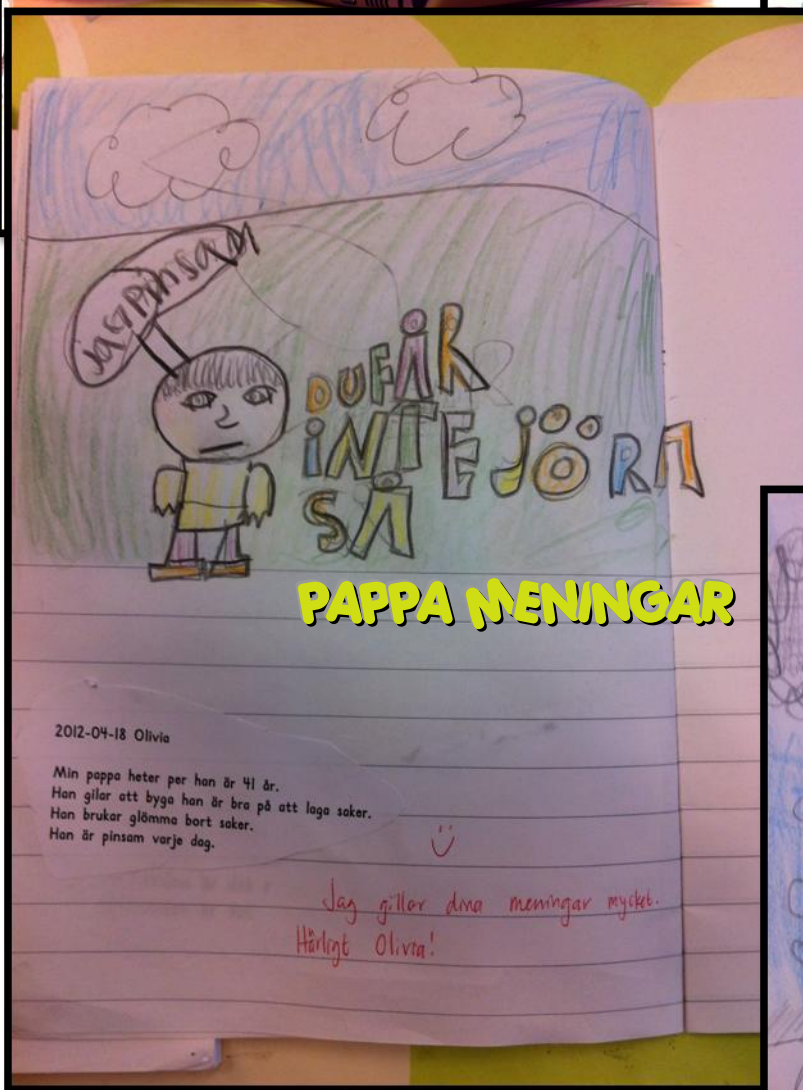 jag pinsam
DU FÅR
iNTE JÖRA
SÅ
PAPPA MENINGAR
2012-04-18 Olivia
Min pappa heter per han är 41 år.
Han gilar att byga han är bra på att laga saker.
Han brukar glömma bort saker.
Han är pinsam varje dag.
Jag gillar dina meningar mycket.
Härligt Olivia!